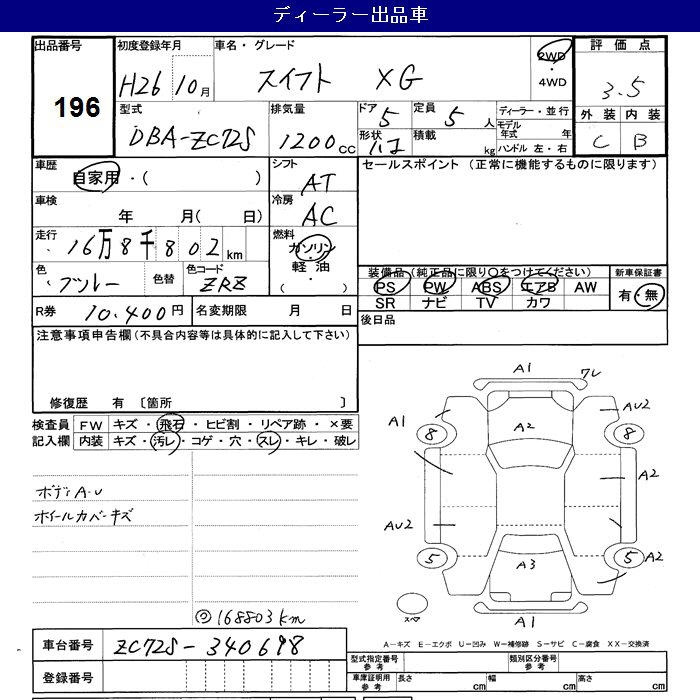 ディーラー出品車
出品番号 初度登録年月 車名・グレード 2WD・4WD 評価点
196 H26 10月 スイフト XG 3.5
型式 排気量 ドア 定員 ディーラー・並行 外装 内装
DBA-ZC72S 1200cc 5 5人 モデル年式 年 C B
形状 積載 kg ハンドル 左・右
車歴 シフト セールスポイント (正常に機能するものに限ります)
自家用・( ) AT
車検 冷房
年 月( 日) AC
走行 燃料
16万8千802km ガソリン・軽油・( )
色 色替 色コード 装備品(純正品に限り○をつけてください) 新車保証書
ブルー ZRZ PS PW ABS エアB AW 有・無
SR ナビ TV カワ
R券 10.400円 名変期限 月 日 後日品
注意事項申告欄(不具合内容等は具体的に記入して下さい)
修復歴 有 〔箇所 〕
検査員記入欄 FW キズ・飛石・ヒビ割・リペア跡・×要
内装 キズ・汚レ・コゲ・穴・スレ・キレ・破レ
ボディA.U
ホイールカバーキズ
A1 ワレ
A1 A2 AU2
8 8
A2
AU2
5 5 A2
A3
スペア A1
168803km
A-キズ E-エクボ U-凹み W-補修跡 S-サビ C-腐食 XX-交換済
車台番号 ZC72S-340698
型式指定番号 参考 類別区分番号 参考
登録番号 車庫証明用 参考 長さ cm 幅 cm 高さ cm